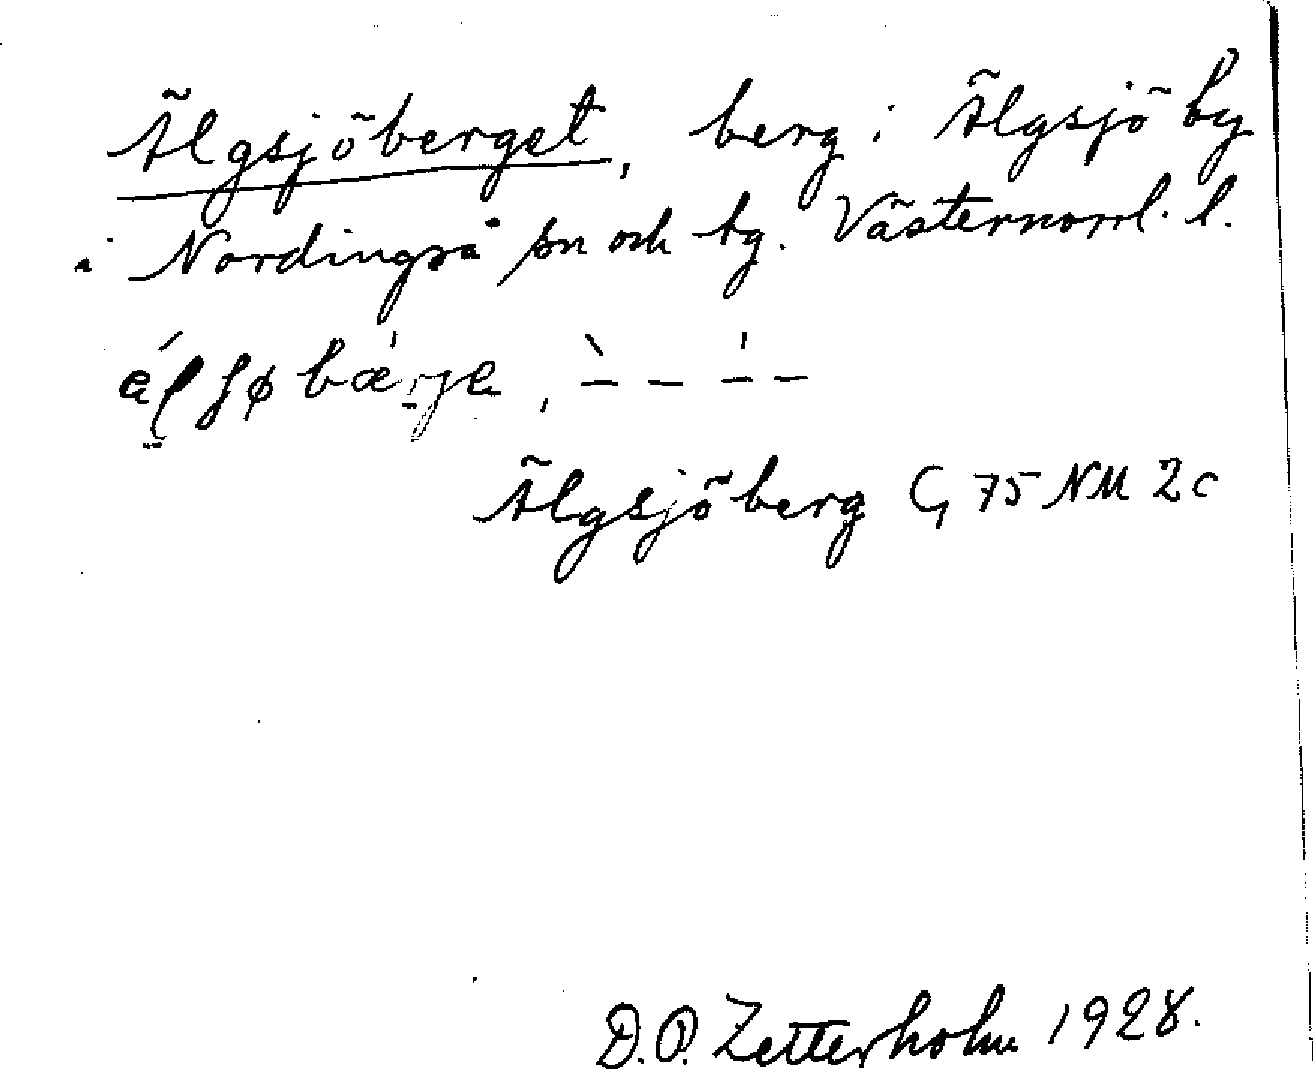 Älgsjöberget, berg i Älgsjö by
i Nordingrå sn och tg. Västernorrl. l.
Älgsjöberg G 75 NM 2c
D.O. Zetterholm 1928.